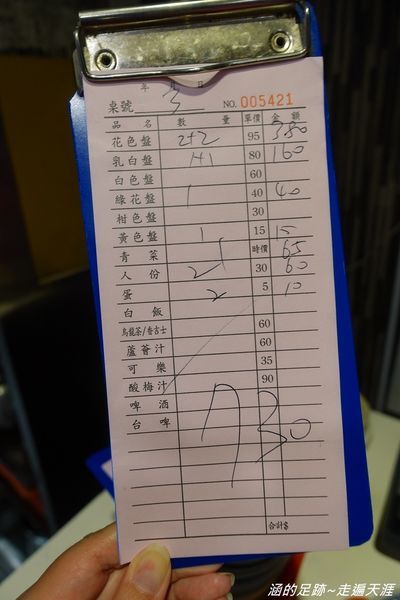 年 月 日
桌號 3 NO. 005421
品名 數量 單價 金額
花色盤 2+2 95 380
乳白盤 1+1 80 160
白色盤 60
綠花盤 1 40 40
柑色盤 30
黃色盤 1 15 15
青菜 1 時價 65
人份 2 30 60
蛋 2 5 10
白飯
烏龍茶/香吉士 60
蘆薈汁 60
可樂 35
酸梅汁 90
啤酒
台啤
730
合計$
涵的足跡~走遍天涯